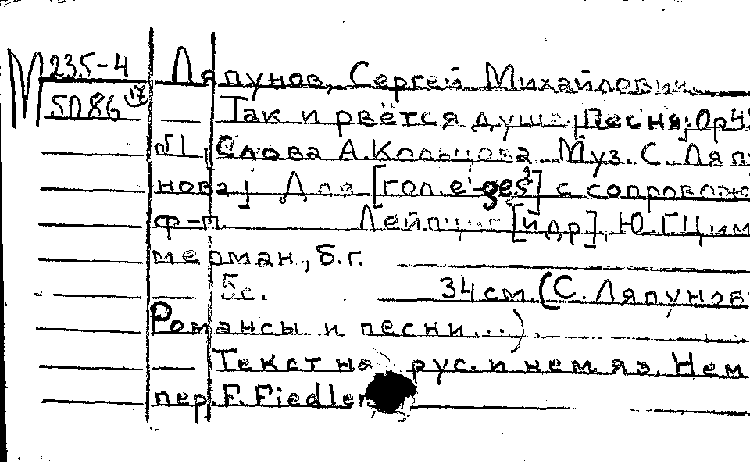 М 235-4 Ляпунов, Сергей Михайлович
5086 Так и рвётся душа. [Песня. Op 4
№1. Слова А. Кольцова. Муз. С. Ляпу
нова] Для [гол. e'-ges²] с сопровож
ф-п. Лейпциг [и др], Ю. Г. Цим
мерман, б. г.
5с. 34 см. (С. Ляпунов
Романсы и песни...)
Текст на рус. и нем. яз. Нем
пер. F. Fiedler